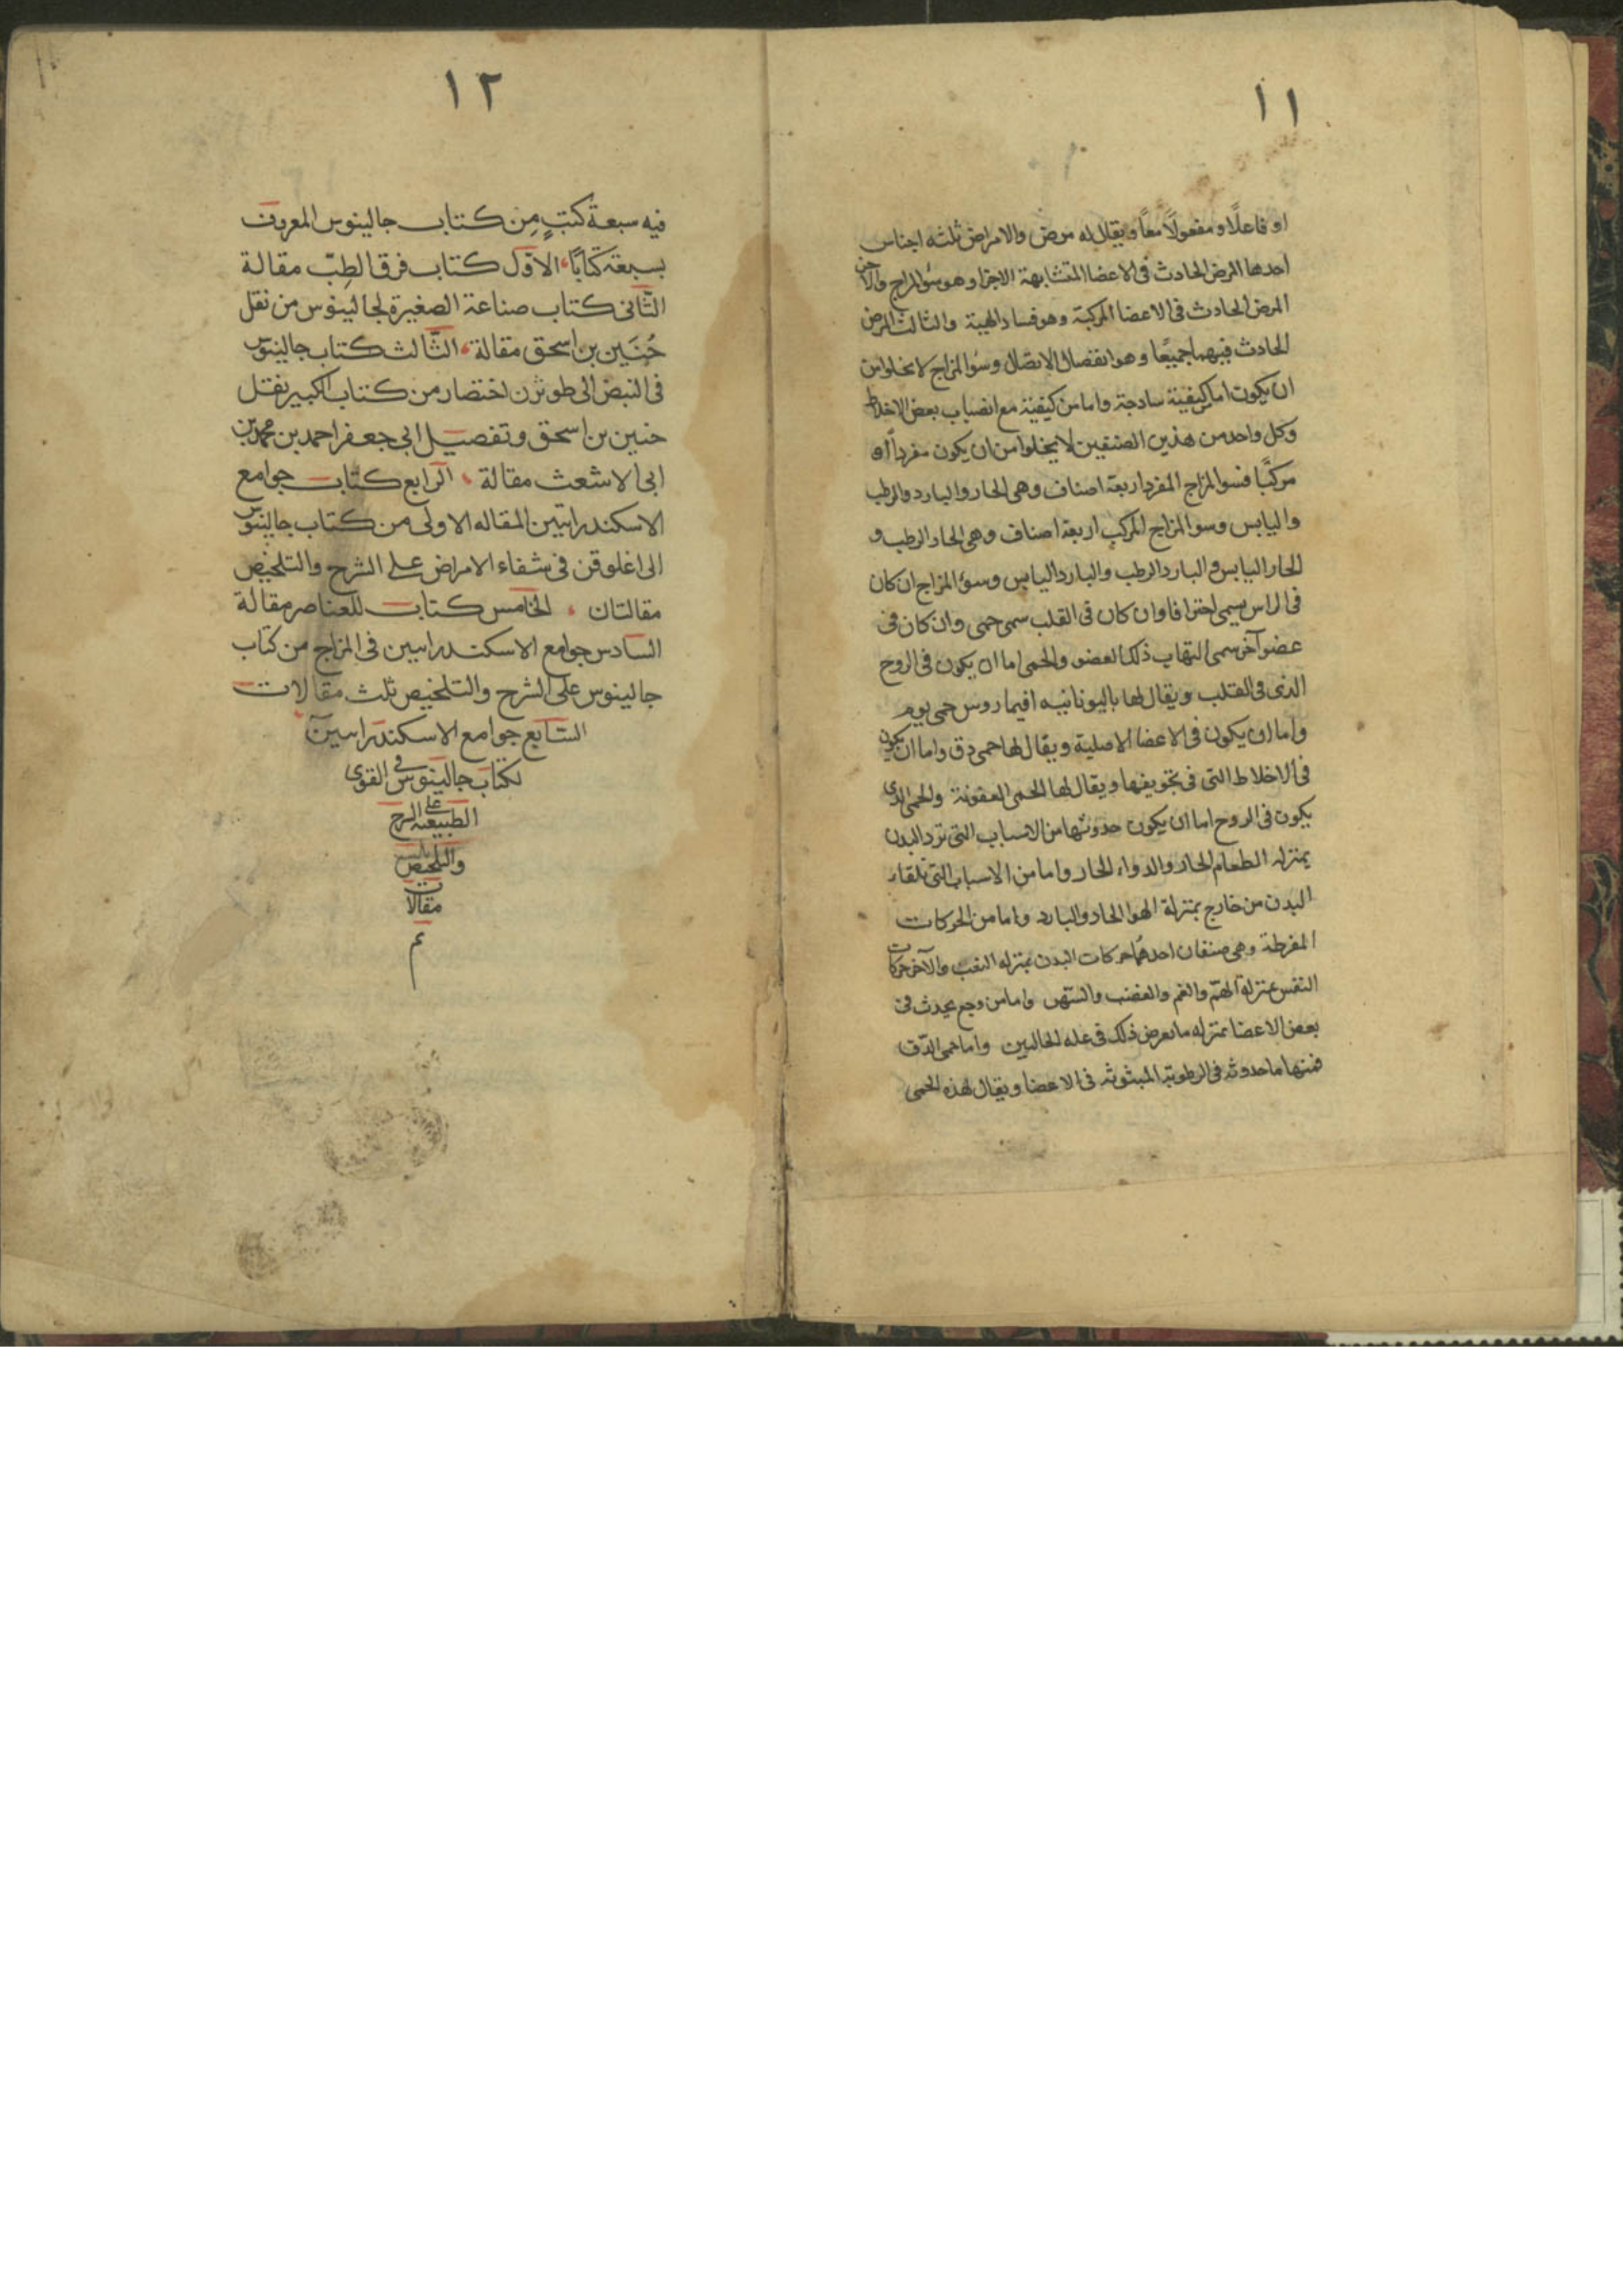 ١١
او فاعلًا و مفعولًا معًا ويقال له مرض والامراض ثلثه اجناس
احدها المرض الحادث فى الاعضا المتشابهة الاجزا وهو سؤ المزاج والآخر
المرض الحادث فى الاعضا المركبة وهو فساد الهيئة والثالث المرض
الحادث فيهما جميعًا وهو انفصال الاتصال وسؤ المزاج لا يخلوا من
ان يكون اما كيفية ساذجة واما من كيفية مع انصباب بعض الاخلاط
وكل واحد من هذين الصنفين لا يخلوا من ان يكون مفردًا او
مركبًا فسو المزاج المفرد اربعة اصناف وهى الحار والبارد والرطب
واليابس وسو المزاج المركب اربعة اصناف وهى الحار الرطب و
الحار اليابس والبارد الرطب والبارد اليابس وسؤ المزاج ان كان
فى الراس يسمى احتراقا وان كان فى القلب سمى حمى وان كان فى
عضو آخر سمى التهاب ذلك العضو والحمى اما ان يكون فى الروح
الذى فى القلب ويقال لها باليونانيه افيماروس حمى يوم
واما ان يكون فى الاعضا الاصلية ويقال لها حمى دق واما ان يكون
فى الاخلاط التى فى تجويفها ويقال لها الحمى العفونة والحمى الذى
يكون فى الروح اما ان يكون حدوثها من الاسباب التى ترد البدن
بمنزله الطعام الحار والدواء الحار واما من الاسباب التى تلقاء
البدن من خارج بمنزلة الهوا الحار والبارد واما من الحركات
المفرطة وهى صنفان احدهما حركات البدن بمنزله التعب والآخر حركات
النفس بمنزلة الهمّ والغم والغضب والسهر واما من وجع يحدث فى
بعض الاعضا بمنزله ما يعرض ذلك فى عله الحالبين واما حمى الدّق
فمنها ما حدوثه فى الرطوبة المبثوثه فى الاعضا ويقال لهذه الحمى
١٢
فيه سبعة كتبٍ مِن كتاب جالينوس المعروف
بسبعة كتابًا الاوّل كتاب فرق الطِبّ مقالة
الثّانى كتاب صناعة الصغيرة لجالينوس من نقل
حُنَين بن اسحق مقالة الثّالث كتاب جالينوس
فى النبض الى طوثرن اختصار من كتاب الكبير نقل
حنين بن اسحق وتفصيل ابى جعفر احمد بن محمد بن
ابى الاشعث مقالة الرابع كتاب جوامع
الاسكندرانيين المقاله الاولى من كتاب جالينوس
الى اغلوقن فى شفاء الامراض على الشرح والتلخيص
مقالتان الخامس كتاب للعناصر مقالة
السادس جوامع الاسكندرانيين فى المزاج من كتاب
جالينوس على الشرح والتلخيص ثلث مقالات
السّابع جوامع الاسكندرانيين
لكتاب جالينوس فى القوى
الطبيعيه على الشرح
والتلخيص
مقالات
تم